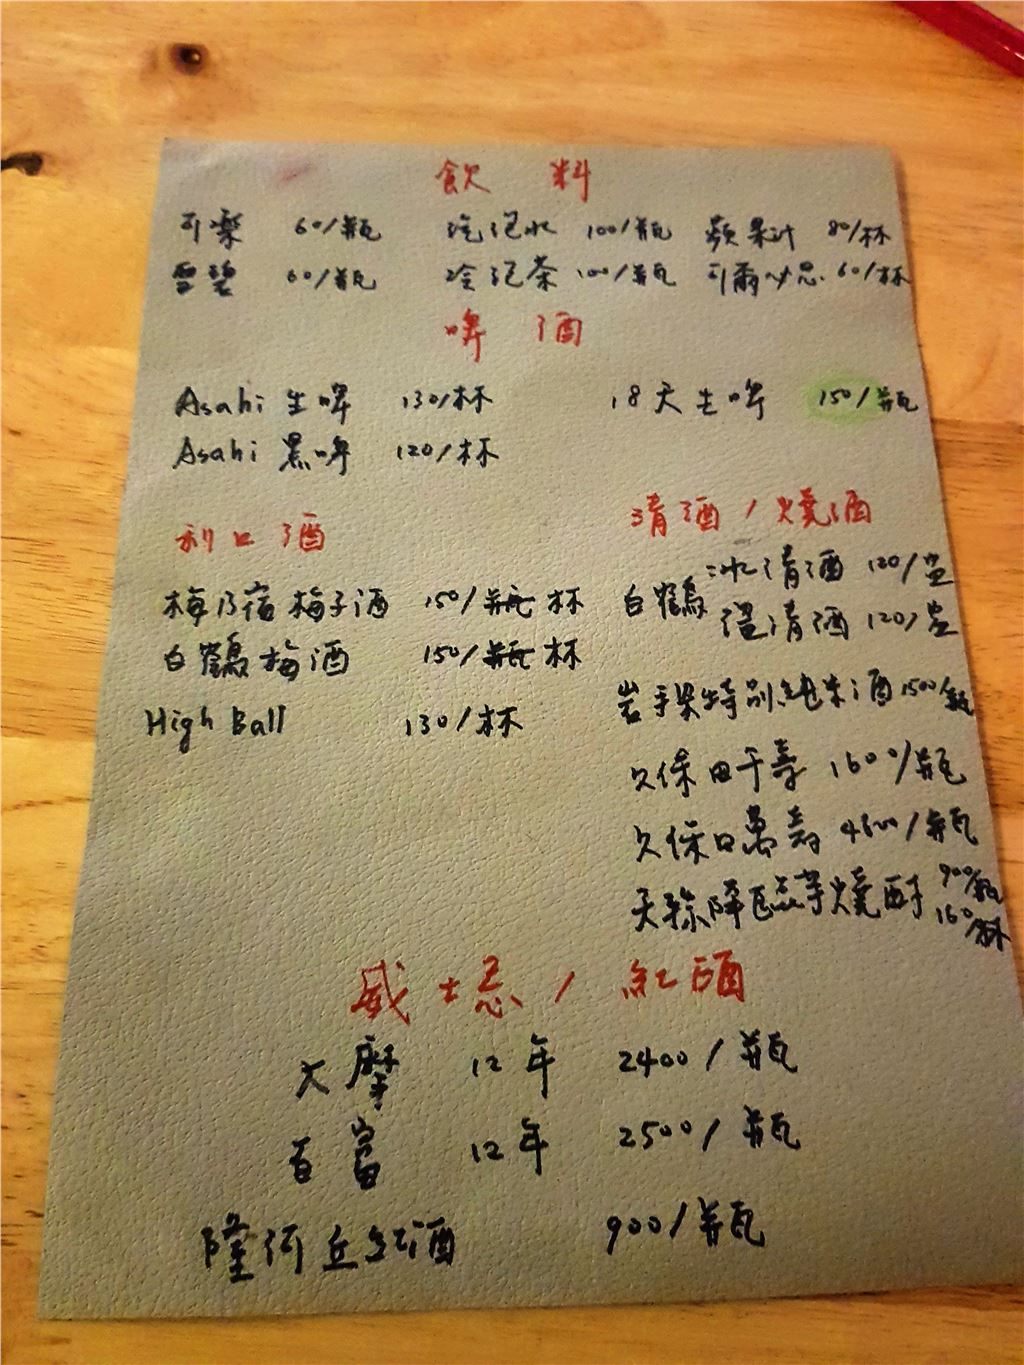 飲 料
可樂 60/瓶 汽泡水 100/瓶 蘋果汁 80/杯
雪碧 60/瓶 冷泡茶 100/瓶 可爾必思 60/杯
啤 酒
Asahi 生啤 130/杯 18天生啤 150/瓶
Asahi 黑啤 120/杯
利口酒
梅乃宿梅子酒 150/瓶杯
白鶴梅酒 150/瓶杯
High Ball 130/杯
清酒/燒酒
白鶴 冰清酒 120/壺
溫清酒 120/壺
岩手 特別純米酒 1500/瓶
久保田千壽 1600/瓶
久保田萬壽 4500/瓶
天孫降臨芋燒酎 900/瓶
160/杯
威士忌/紅酒
大摩 12年 2400/瓶
百富 12年 2500/瓶
隆河丘紅酒 900/瓶